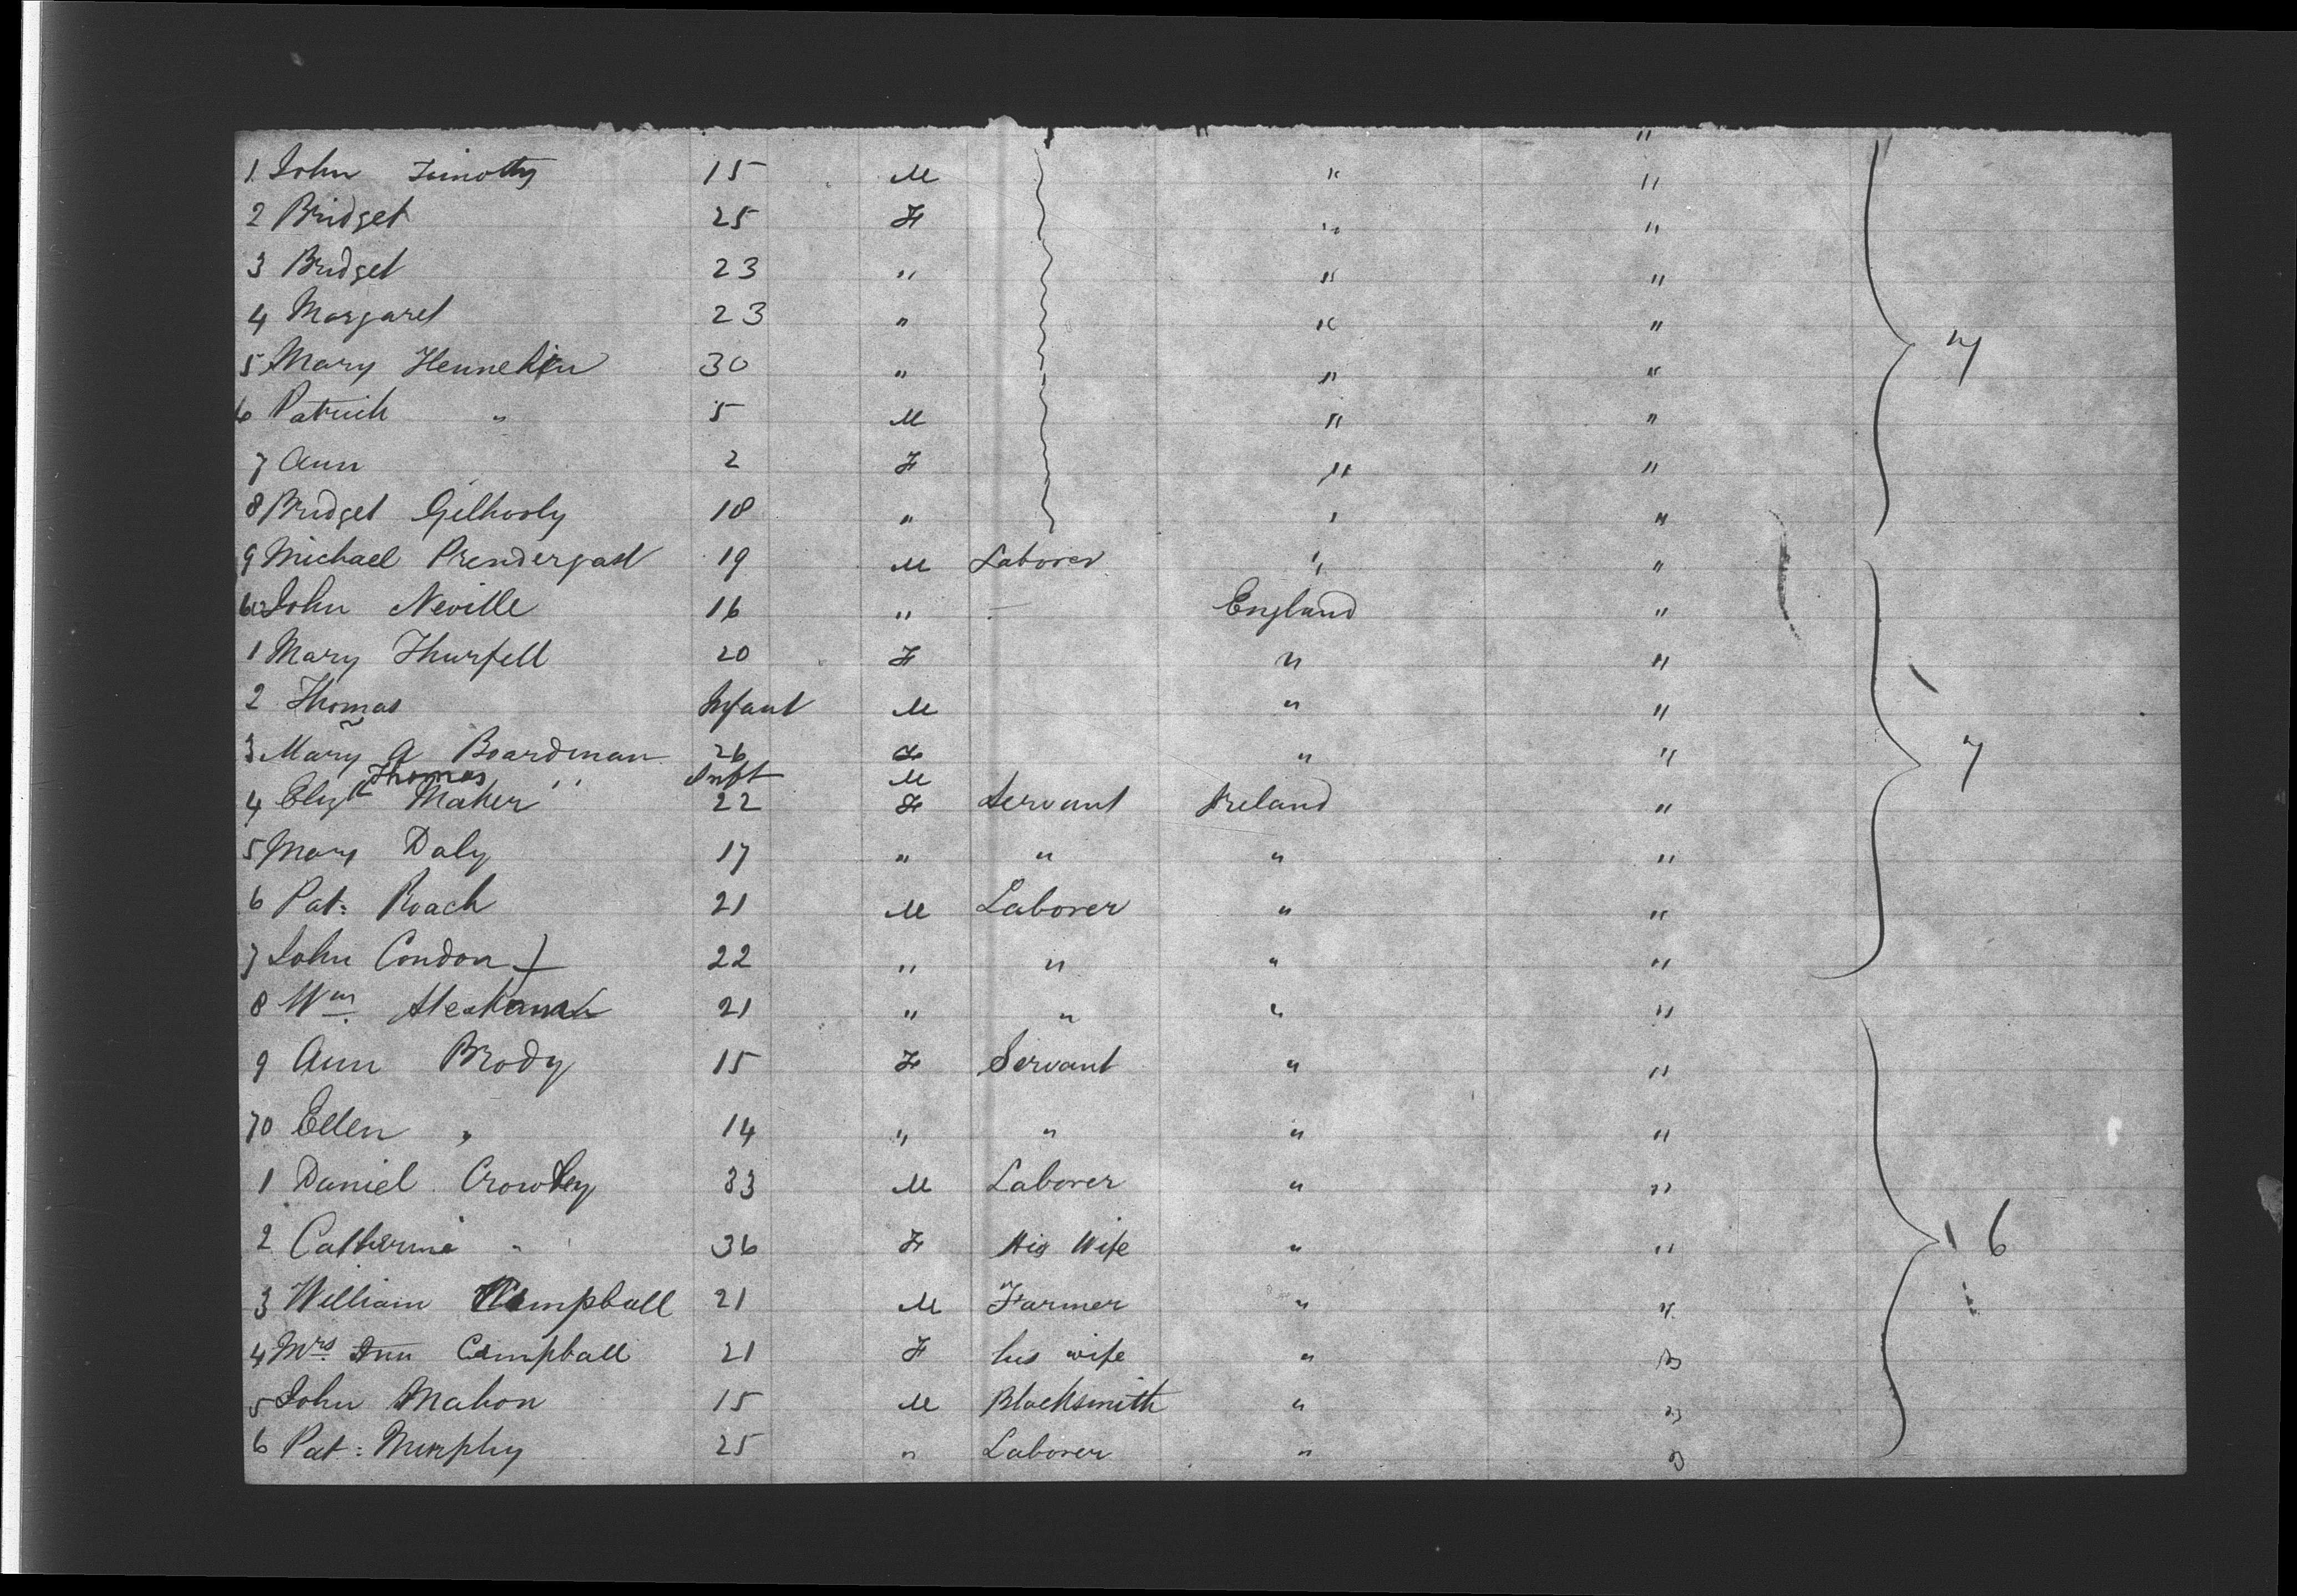 "
1 John Timothy 15 M " "
2 Bridget 25 F " "
3 Bridget 23 " " "
4 Margaret 23 " " "
5 Mary 30 " " "
6 Patrick " 5 M " "
7 Ann 2 F " "
8 Bridget Gilhooly 18 " " "
9 Michael Prendergast 19 M Laborer " "
60 John Neville 16 " - England "
1 Mary 20 F " "
2 Thomas Infant M " "
3 Mary A Boardman 26 F " "
Thomas " Inft M
4 Elizth Maher 22 F Servant Ireland "
5 Mary Daly 17 " " " "
6 Pat: Roach 21 M Laborer " "
7 John Condon 22 " " " "
8 Wm 21 " " " "
9 Ann Brody 15 F Servant " "
70 Ellen " 14 " " " "
1 Daniel Crowley 33 M Laborer " "
2 Catherine " 36 F His Wife " "
3 William Campball 21 M Farmer " "
4 Mrs Ann Campball 21 F his wife " "
5 John Mahon 15 M Blacksmith " "
6 Pat: Murphy 25 " Laborer " "
7
7
6